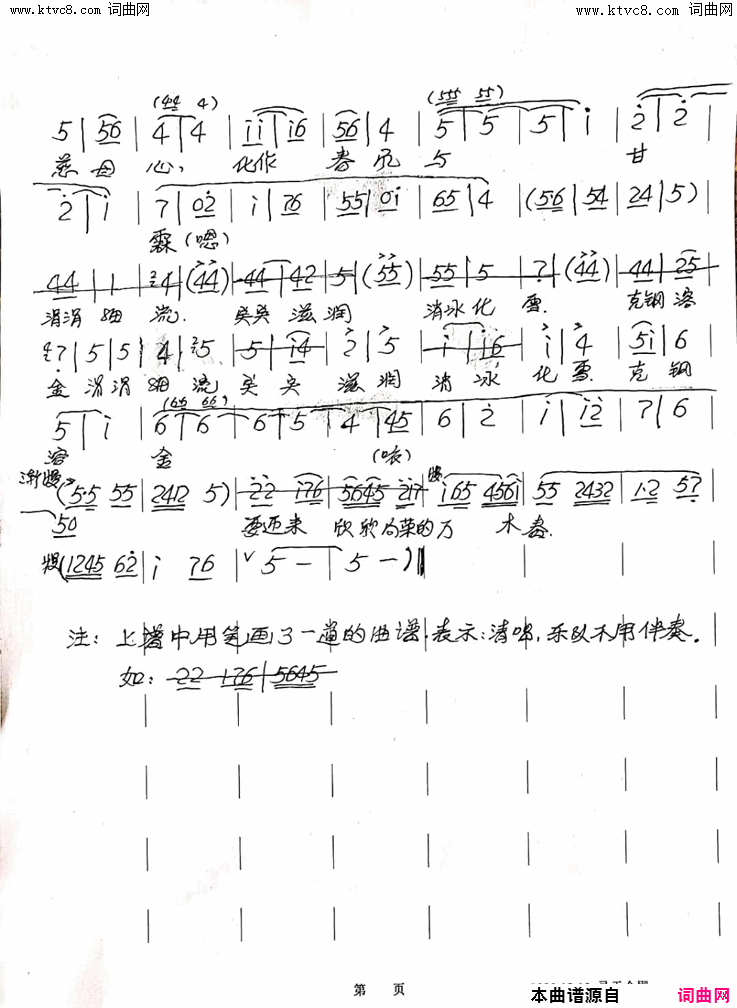 www.ktvc8.com 词曲网
www.ktvc8.com 词曲网
(44 4) (555 55)
5 | 56 | 4 | 4 | i i | i 6 | 56 | 4 | 5 | 5 | 5 | i | 2 | 2 |
慈 母 心, 化作 春 风 与 甘
2 | i | 7 | 02 | i | 76 | 55 | 0i | 65 | 4 | (56 | 54 | 24 | 5) |
霖(嗯)
44 | 1 | 4 | (44) | 44 | 42 | 5 | (55) | 55 | 5 | ? | (44) | 44 | 25
涓涓 细 流. 滋 润 消冰 化 雪. 克 钢 溶
? | 5 | 5 | 4 | 5 | 5 | i4 | 2 | 5 | i | i6 | i | 4 | 5i | 6
金 涓 涓 细 流 滋 润 消 冰 化 雪. 克 钢
(66 66)
5 | i | 6 | 6 | 6 | 5 | 4 | 45 | 6 | 2 | i | i2 | 7 | 6
溶 金 (咳)
渐慢 (5·5 55 | 2412 5) | 22 i76 | 5645 217 | i65 456i | 55 2432 | 1·2 57
50 要迎来 欣欣向荣的万 木春.
慢(1245 62 | i 76 | V 5 — | 5 —)‖
注: 上谱中用笔画了一道的曲谱,表示:清唱,乐队不用伴奏.
如: 22 176 | 5645
第 页
本曲谱源自 词曲网